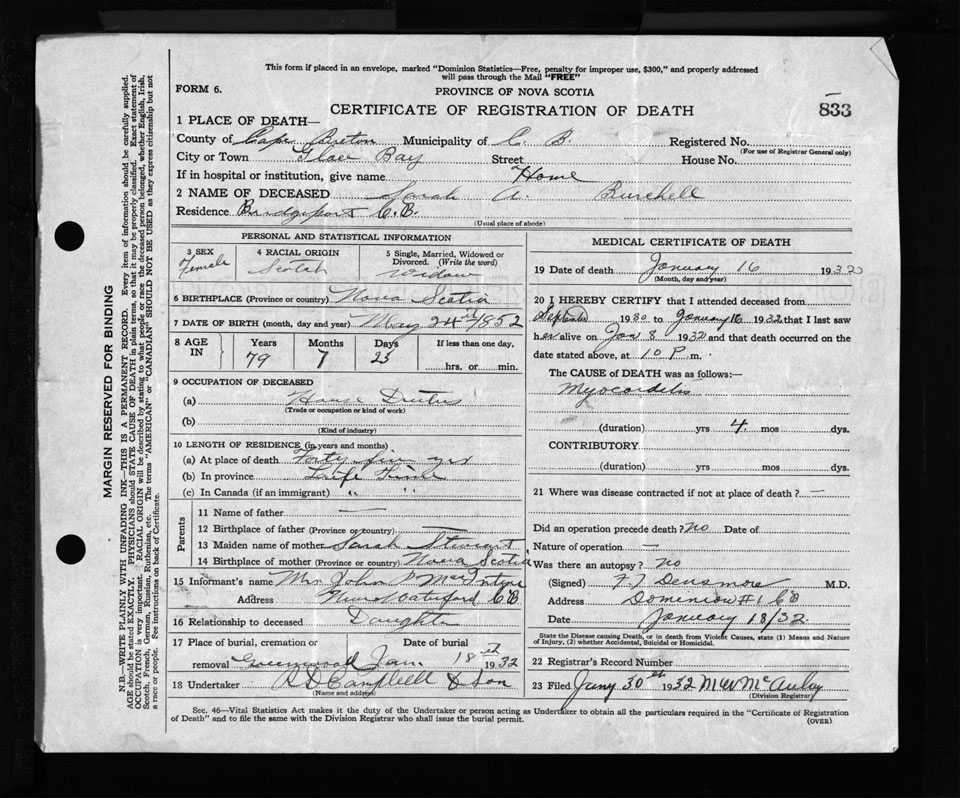 This form if placed in an envelope, marked "Dominion Statistics—Free, penalty for improper use, $300," and properly addressed
will pass through the Mail "FREE"
FORM 6.
PROVINCE OF NOVA SCOTIA
CERTIFICATE OF REGISTRATION OF DEATH
833
1 PLACE OF DEATH—
County of Cape Breton Municipality of C. B. Registered No.
(For use of Registrar General only)
City or Town Glace Bay Street House No.
If in hospital or institution, give name Home
2 NAME OF DECEASED Sarah A. Burchell
Residence Bridgeport C.B.
(Usual place of abode)
PERSONAL AND STATISTICAL INFORMATION
3 SEX Female
4 RACIAL ORIGIN Scotch
5 Single, Married, Widowed or Divorced. (Write the word) Widow
6 BIRTHPLACE (Province or country) Nova Scotia
7 DATE OF BIRTH (month, day and year) May 24th 1852
8 AGE IN Years 79 Months 7 Days 23 If less than one day, hrs. or min.
9 OCCUPATION OF DECEASED
(a) House Duties
(Trade or occupation or kind of work)
(b)
(Kind of industry)
10 LENGTH OF RESIDENCE (in years and months)
(a) At place of death Forty five yrs
(b) In province Life Time
(c) In Canada (if an immigrant) " "
Parents
11 Name of father —
12 Birthplace of father (Province or country) —
13 Maiden name of mother Sarah Stewart
14 Birthplace of mother (Province or country) Nova Scotia
15 Informant's name Mrs John D MacIntyre
Address New Waterford CB
16 Relationship to deceased Daughter
17 Place of burial, cremation or removal Greenwood Date of burial Jan 18th 1932
18 Undertaker A D Campbell & Son
(Name and address)
MEDICAL CERTIFICATE OF DEATH
19 Date of death January 16 1932
(Month, day and year)
20 I HEREBY CERTIFY that I attended deceased from
September 1930 to January 16 1932 that I last saw
her alive on Jan 8 1932 and that death occurred on the
date stated above, at 10 P m.
The CAUSE of DEATH was as follows:—
Myocarditis
(duration) yrs 4 mos dys.
CONTRIBUTORY
(duration) yrs. mos. dys.
21 Where was disease contracted if not at place of death? —
Did an operation precede death? No Date of
Nature of operation —
Was there an autopsy? No
(Signed) F T Densmore M.D.
Address Dominion #1 CB
Date January 18/32.
State the Disease causing Death, or in death from Violent Causes, state (1) Means and Nature
of Injury, (2) whether Accidental, Suicidal or Homicidal.
22 Registrar's Record Number
23 Filed Jany 30th 1932 M W McAuley
(Division Registrar)
Sec. 46—Vital Statistics Act makes it the duty of the Undertaker or person acting as Undertaker to obtain all the particulars required in the "Certificate of Registration
of Death" and to file the same with the Division Registrar who shall issue the burial permit.
(OVER)
MARGIN RESERVED FOR BINDING
N.B.—WRITE PLAINLY WITH UNFADING INK—THIS IS A PERMANENT RECORD. Every item of information should be carefully supplied.
AGE should be stated EXACTLY. PHYSICIANS should STATE CAUSE OF DEATH in plain terms, so that it may be properly classified. Exact statement of
OCCUPATION is very important. RACIAL ORIGIN will be described by stating to what people or race the deceased person belonged, whether English, Irish,
Scotch, French, German, Russian, Ruthenian, etc. The terms "AMERICAN" or "CANADIAN" SHOULD NOT BE USED as they express citizenship but not
a race or people. See instructions on back of Certificate.